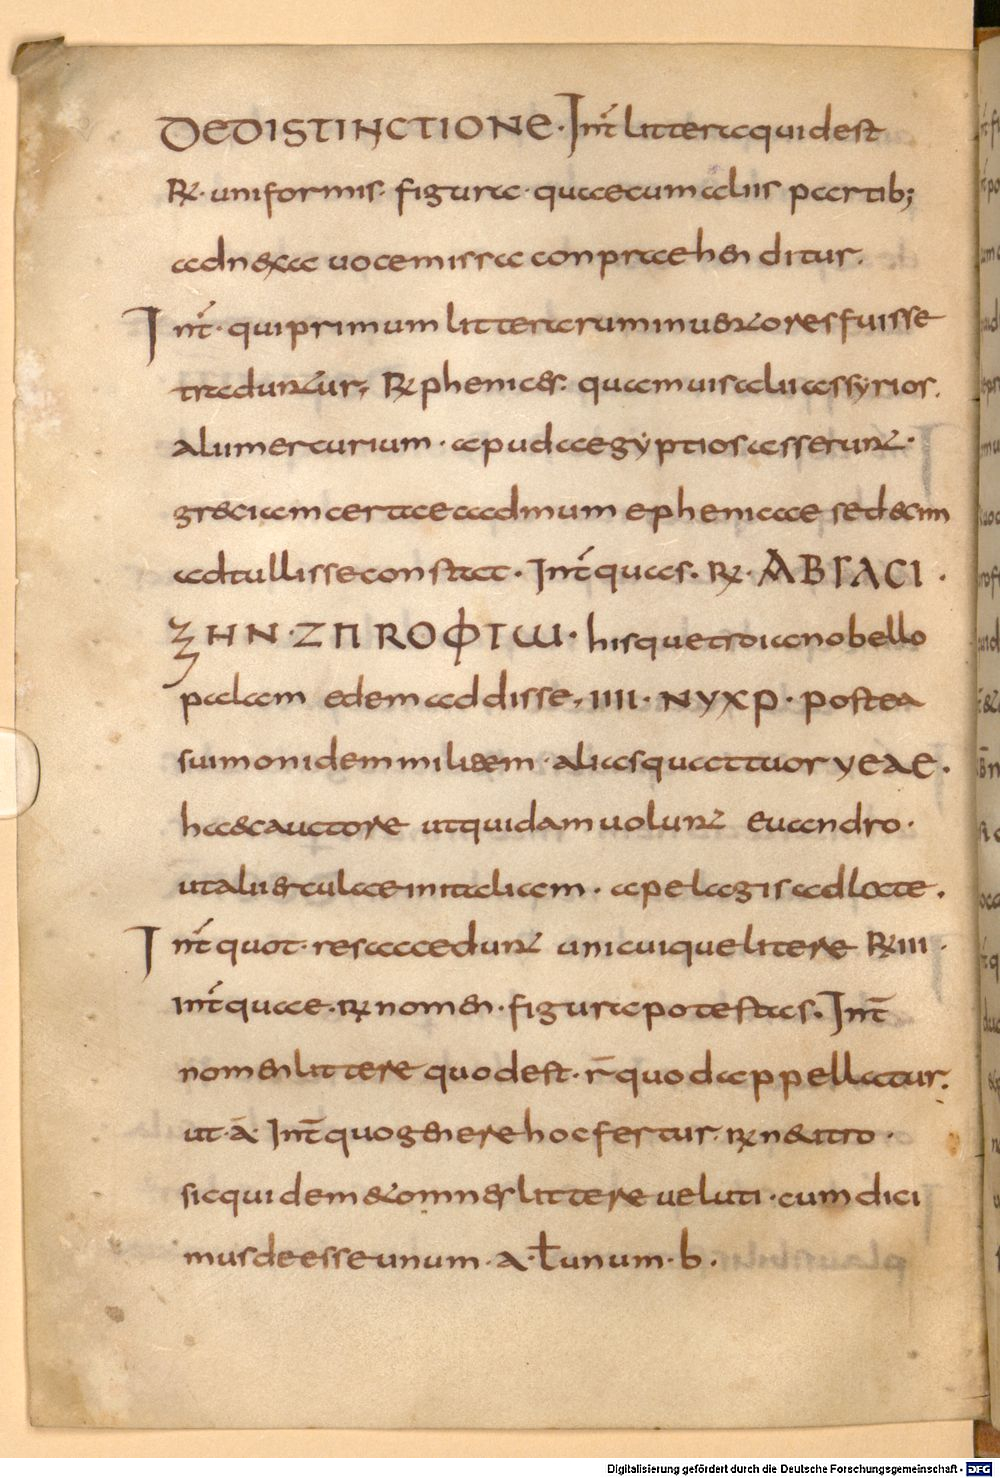 DE DISTINCTIONE. Int̄ littera quid est
℞. uniformis. figura. quae cum aliis partib;
ad nexa uoce missa conpraehenditur.
Int̄. qui primum litterarum inuentores fuisse
traduntur, ℞ phenices. quamuis alii assyrios.
alii mercurium. apud aegyptios asserunt.
greciam certae cadmum e phenicae sedecim
adtullisse constat. Int̄ quas. ℞. ΑΒΓΛCΙ.
Ʒ Η Ν. Ζ Π R Ο Φ Ι Ш. hisque troiano bello
palam edem addisse, IIII. NYXP. postea
suimonidem miliem. alias quattuor YEAE.
haec auctore ut quidam uolunt euandro.
ut alii erculae in italiam. a pelagis adlate.
Int̄ quot. res accedunt unicuique litere ℞ III.
Int̄ quae. ℞ nomen. figura potestas. Int̄
nomen littere quod est. r̄ quod appellatur.
ut. ā. Int̄ quo genere hoc fertur. ℞ neutro.
sic quidem et omnes littere ueluti. cum dici
mus deesse unum. a. ł unum. b.
Digitalisierung gefördert durch die Deutsche Forschungsgemeinschaft - DFG